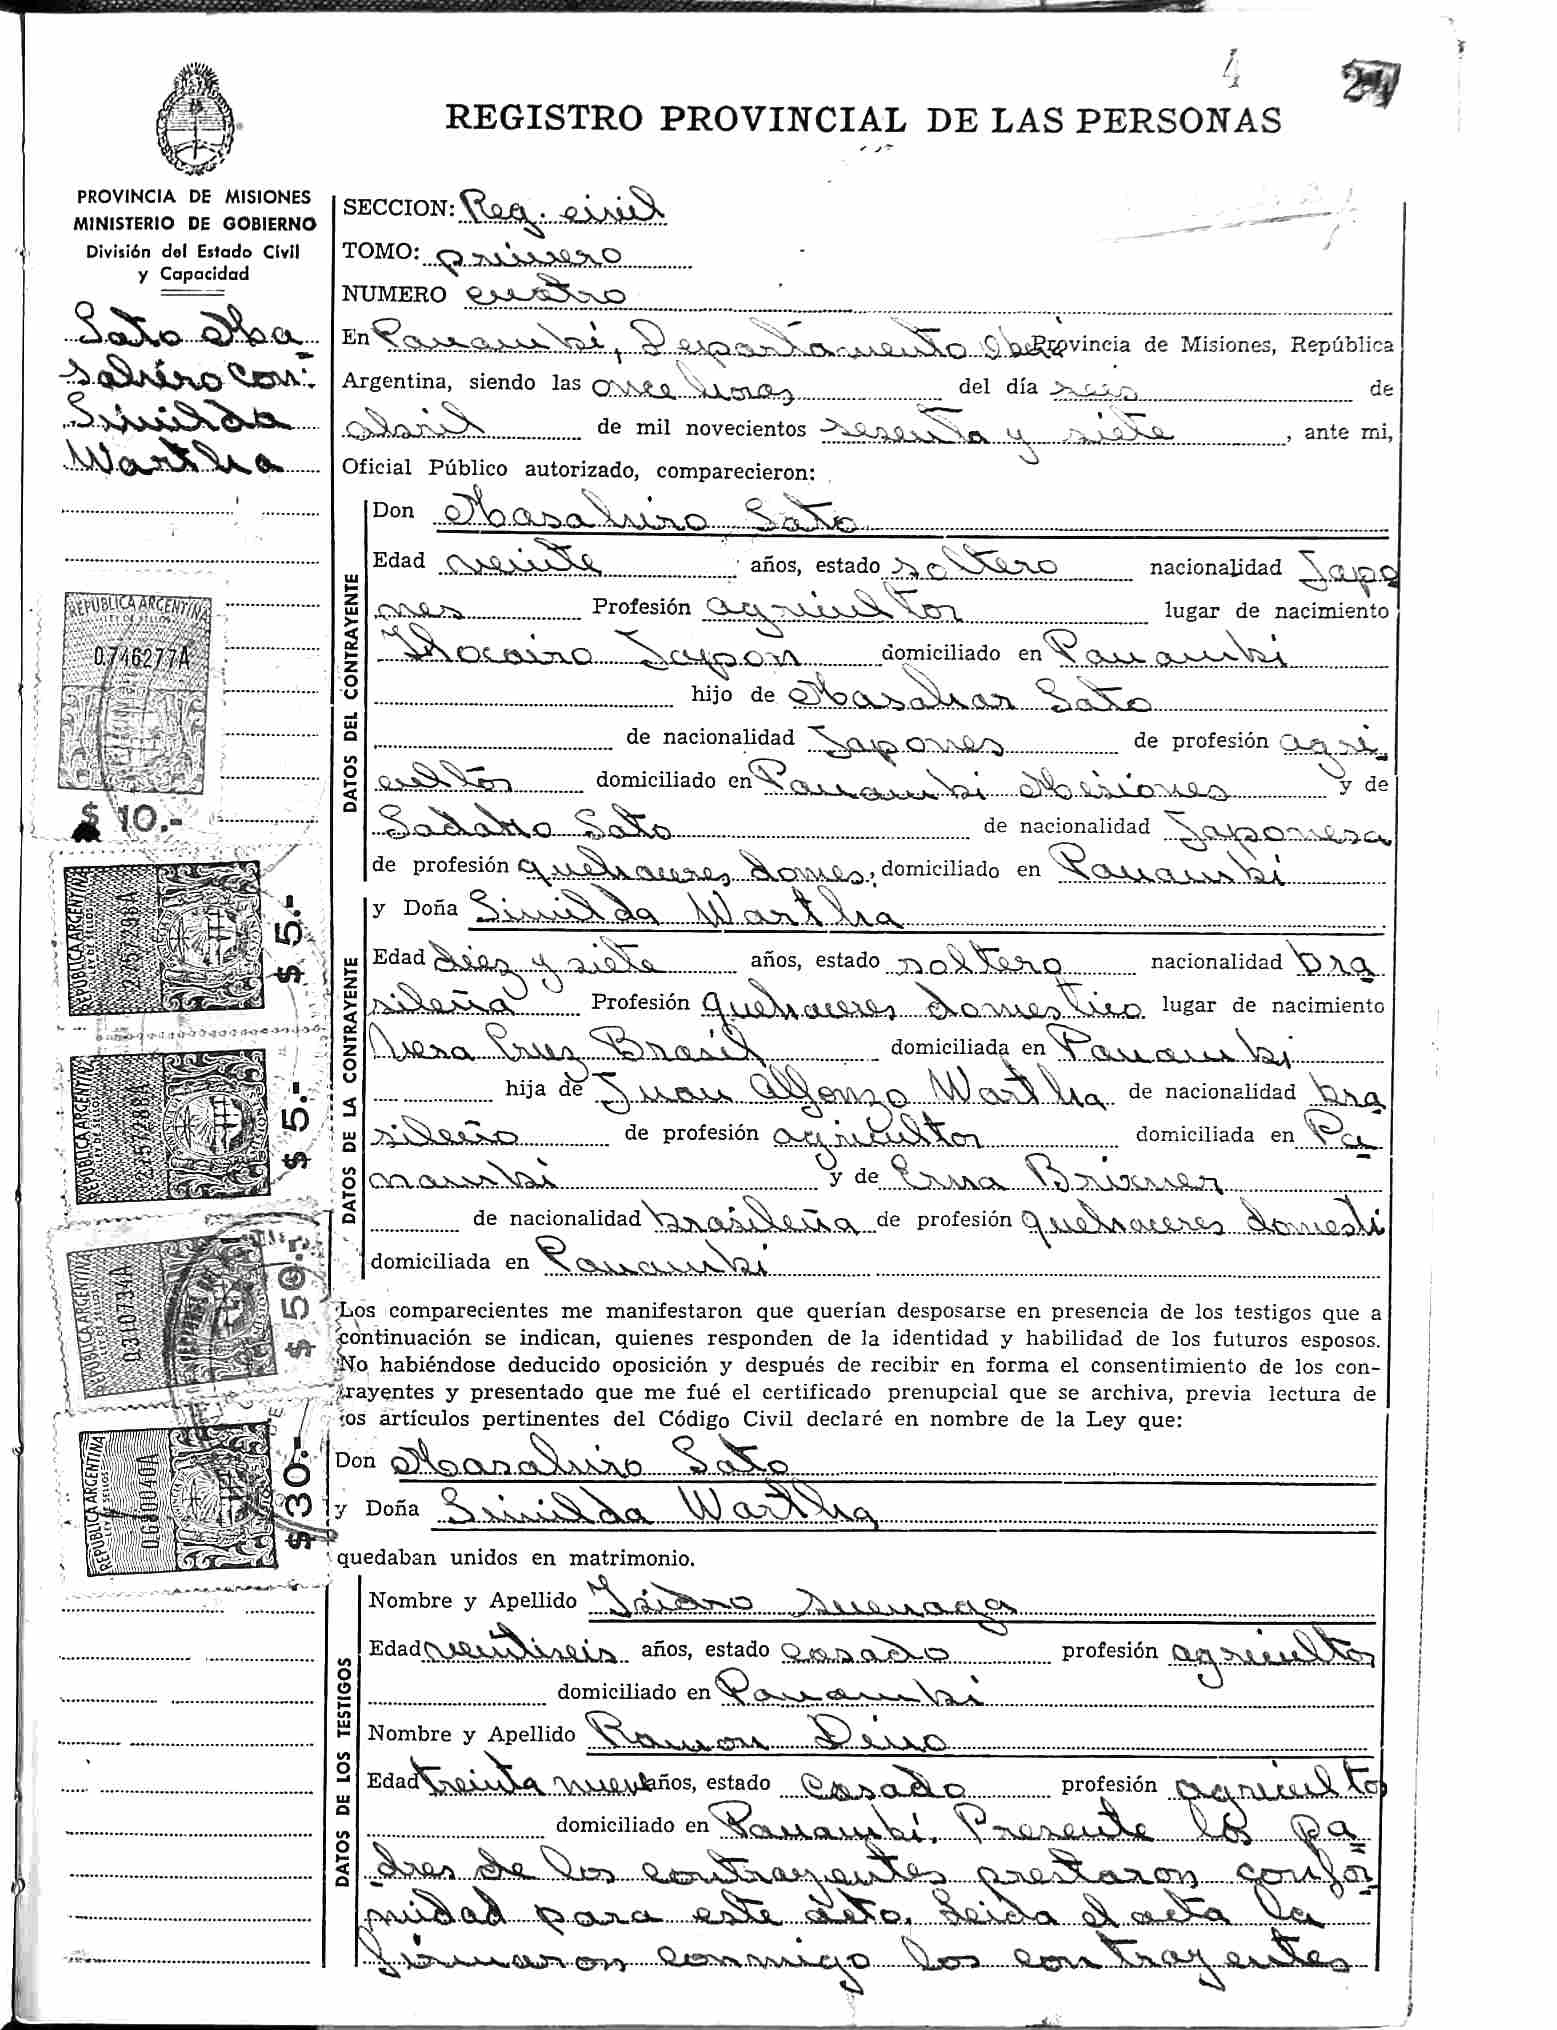 4 24
REGISTRO PROVINCIAL DE LAS PERSONAS
PROVINCIA DE MISIONES
MINISTERIO DE GOBIERNO
División del Estado Civil
y Capacidad
Sato Ma
sahiro con:
Sinilda
Wartha
REPUBLICA ARGENTINA
LEY DE SELLOS
0.746277A
$ 10.-
REPUBLICA ARGENTINA
LEY DE SELLOS
$ 5.-
REPUBLICA ARGENTINA
LEY DE SELLOS
2257288A
$ 5.-
REPUBLICA ARGENTINA
LEY DE SELLOS
0310734A
$ 50.-
REPUBLICA ARGENTINA
LEY DE SELLOS
0680040A
$ 30.-
SECCION: Reg. civil
TOMO: primero
NUMERO cuatro
En Panambi, Departamento Oberá Provincia de Misiones, República
Argentina, siendo las once horas del día seis de
abril de mil novecientos sesenta y siete, ante mi,
Oficial Público autorizado, comparecieron:
DATOS DEL CONTRAYENTE
Don Masahiro Sato
Edad veinte años, estado soltero nacionalidad Japo
nes Profesión agricultor lugar de nacimiento
Japon domiciliado en Panambi
hijo de Masahar Sato
de nacionalidad Japones de profesión agri
cultor domiciliado en Panambi Misiones y de
Sato de nacionalidad Japonesa
de profesión quehaceres domes, domiciliado en Panambi
DATOS DE LA CONTRAYENTE
y Doña Sinilda Wartha
Edad diez y siete años, estado soltera nacionalidad bra
sileña Profesión quehaceres domestico lugar de nacimiento
Vera Cruz Brasil domiciliada en Panambi
hija de Juan Alfonzo Wartha de nacionalidad bra
sileño de profesión agricultor domiciliada en Pa
nambi y de Erna Brixner
de nacionalidad brasileña de profesión quehaceres domesti
domiciliada en Panambi
Los comparecientes me manifestaron que querían desposarse en presencia de los testigos que a
continuación se indican, quienes responden de la identidad y habilidad de los futuros esposos.
No habiéndose deducido oposición y después de recibir en forma el consentimiento de los con-
trayentes y presentado que me fué el certificado prenupcial que se archiva, previa lectura de
los artículos pertinentes del Código Civil declaré en nombre de la Ley que:
Don Masahiro Sato
y Doña Sinilda Wartha
quedaban unidos en matrimonio.
DATOS DE LOS TESTIGOS
Nombre y Apellido Isidro Suenaga
Edad ventiseis años, estado casado profesión agricultor
domiciliado en Panambi
Nombre y Apellido Ramon Dino
Edad treinta nueve años, estado casado profesión agricultor
domiciliado en Panambi. Presente los pa
dres de los contrayentes prestaron confor
midad para este acto. Leida el acta la
firmaron conmigo los contrayentes